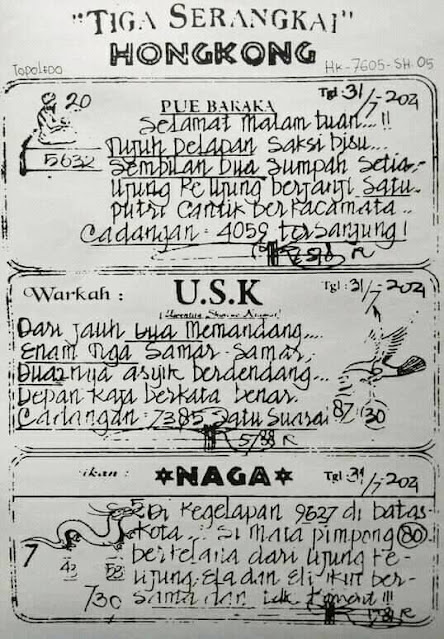 "TIGA SERANGKAI"
HONGKONG
TOPOLEDO
HK-7605-SH.05
20
PUE BAKAKA
Tgl: 31/7-2021
5632
Selamat malam tuan...!!
Tujuh Delapan Saksi bisu...
Sembilan Dua Sumpah Setia..
Ujung ke Ujung berjanji Satu
Putri Cantik berkacamata..
Cadangan: 4059 tersanjung!
R
Warkah :
U.S.K
Tgl: 31/7-2021
Dari jauh Dua Memandang....
Enam Tiga Samar-Samar,
Dua2nya asyik berdendang...
Depan Kaja berkata benar.
Cadangan: 7385 Satu Suara!
87 30
5788 R
ikan :
NAGA
Tgl 31/7-2021
5
7
43 58
730
Di Kegelapan 9627 di batas
Kota...! Si Mata pimpong 80
berkelana dari ujung ke-
Ujung. Ela dan Eli ikut ber-
Santai dan
R